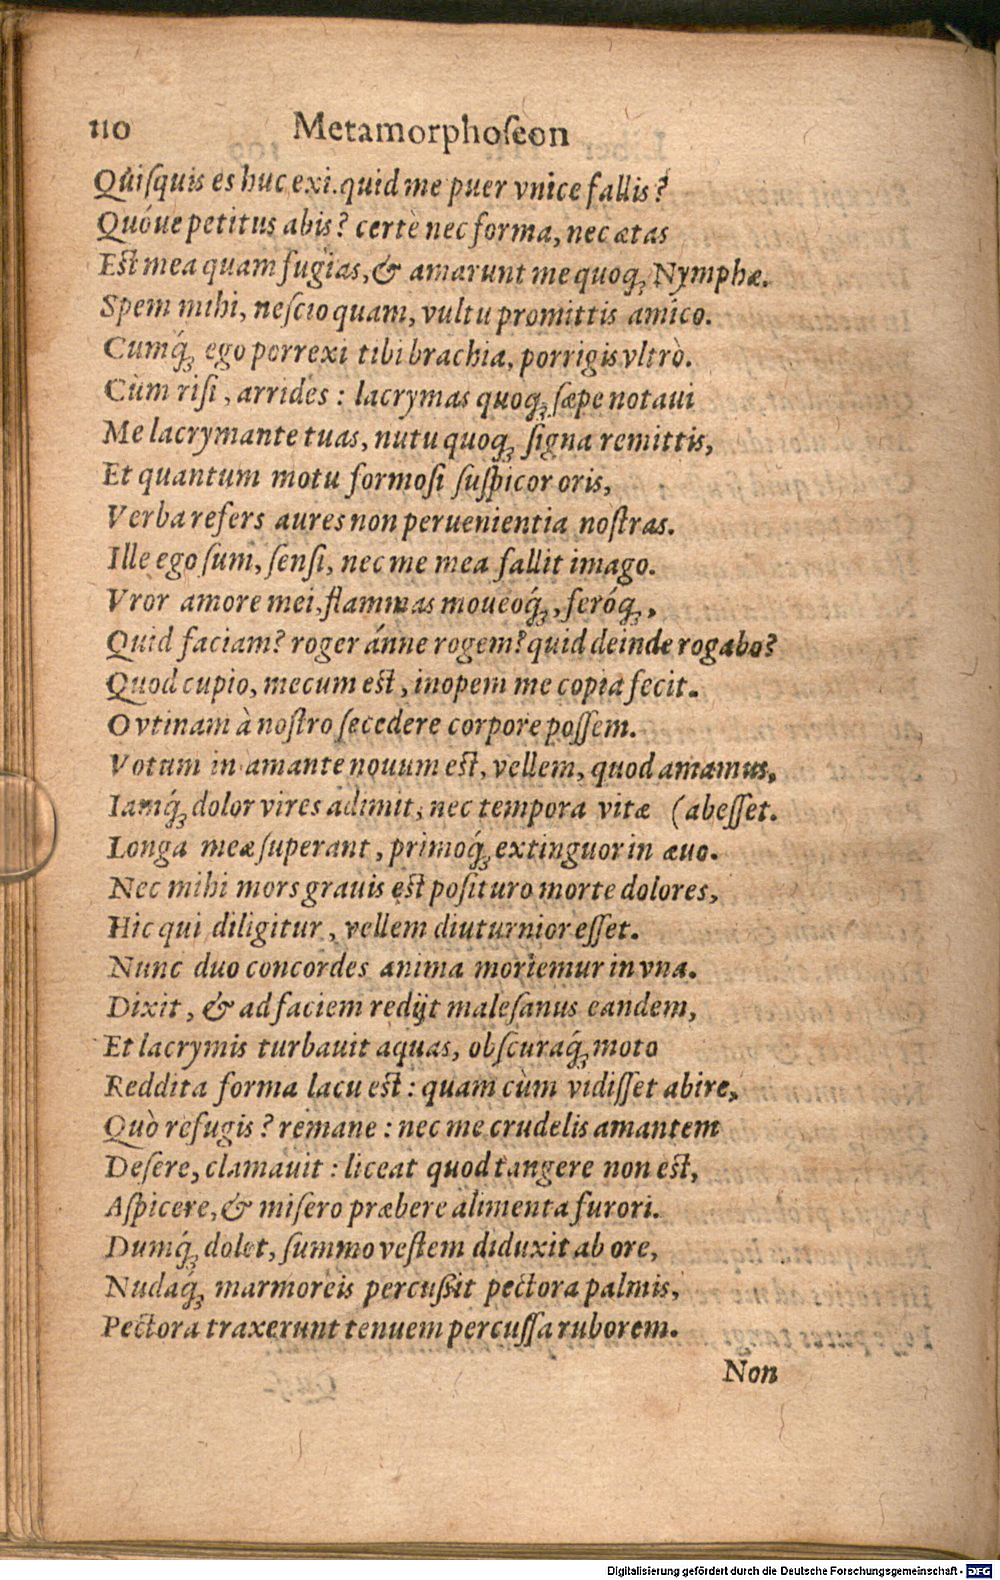 110 Metamorphoſeon
Quiſquis es huc exi. quid me puer vnice fallis?
Quóue petitus abis? certè nec forma, nec ætas
Est mea quam fugias, & amarunt me quoq; Nymphæ.
Spem mihi, neſcio quam, vultu promittis amico.
Cumq́; ego porrexi tibi brachia, porrigis vltrò.
Cùm riſi, arrides: lacrymas quoq; ſæpe notaui
Me lacrymante tuas, nutu quoq; ſigna remittis,
Et quantum motu formoſi ſuſpicor oris,
Verba refers aures non peruenientia noſtras.
Ille ego ſum, ſenſi, nec me mea fallit imago.
Vror amore mei, flammas moueoq́;, feróq́;,
Quid faciam? roger ánne rogem? quid deinde rogabo?
Quod cupio, mecum est, inopem me copia fecit.
O vtinam à noſtro ſecedere corpore poſſem.
Votum in amante nouum est, vellem, quod amamus,
Iamq́; dolor vires adimit, nec tempora vitæ (abeſſet.
Longa meæ ſuperant, primoq́; extinguor in æuo.
Nec mihi mors grauis est poſituro morte dolores,
Hic qui diligitur, vellem diuturnior eſſet.
Nunc duo concordes anima moriemur in vna.
Dixit, & ad faciem redijt maleſanus eandem,
Et lacrymis turbauit aquas, obſcuraq́; moto
Reddita forma lacu est: quam cùm vidiſſet abire,
Quò refugis? remane: nec me crudelis amantem
Deſere, clamauit: liceat quod tangere non est,
Aſpicere, & miſero præbere alimenta furori.
Dumq́; dolet, ſummo veſtem diduxit ab ore,
Nudaq́; marmoreis percuſsit pectora palmis,
Pectora traxerunt tenuem percuſſa ruborem.
Non
Digitalisierung gefördert durch die Deutsche Forschungsgemeinschaft - DFG